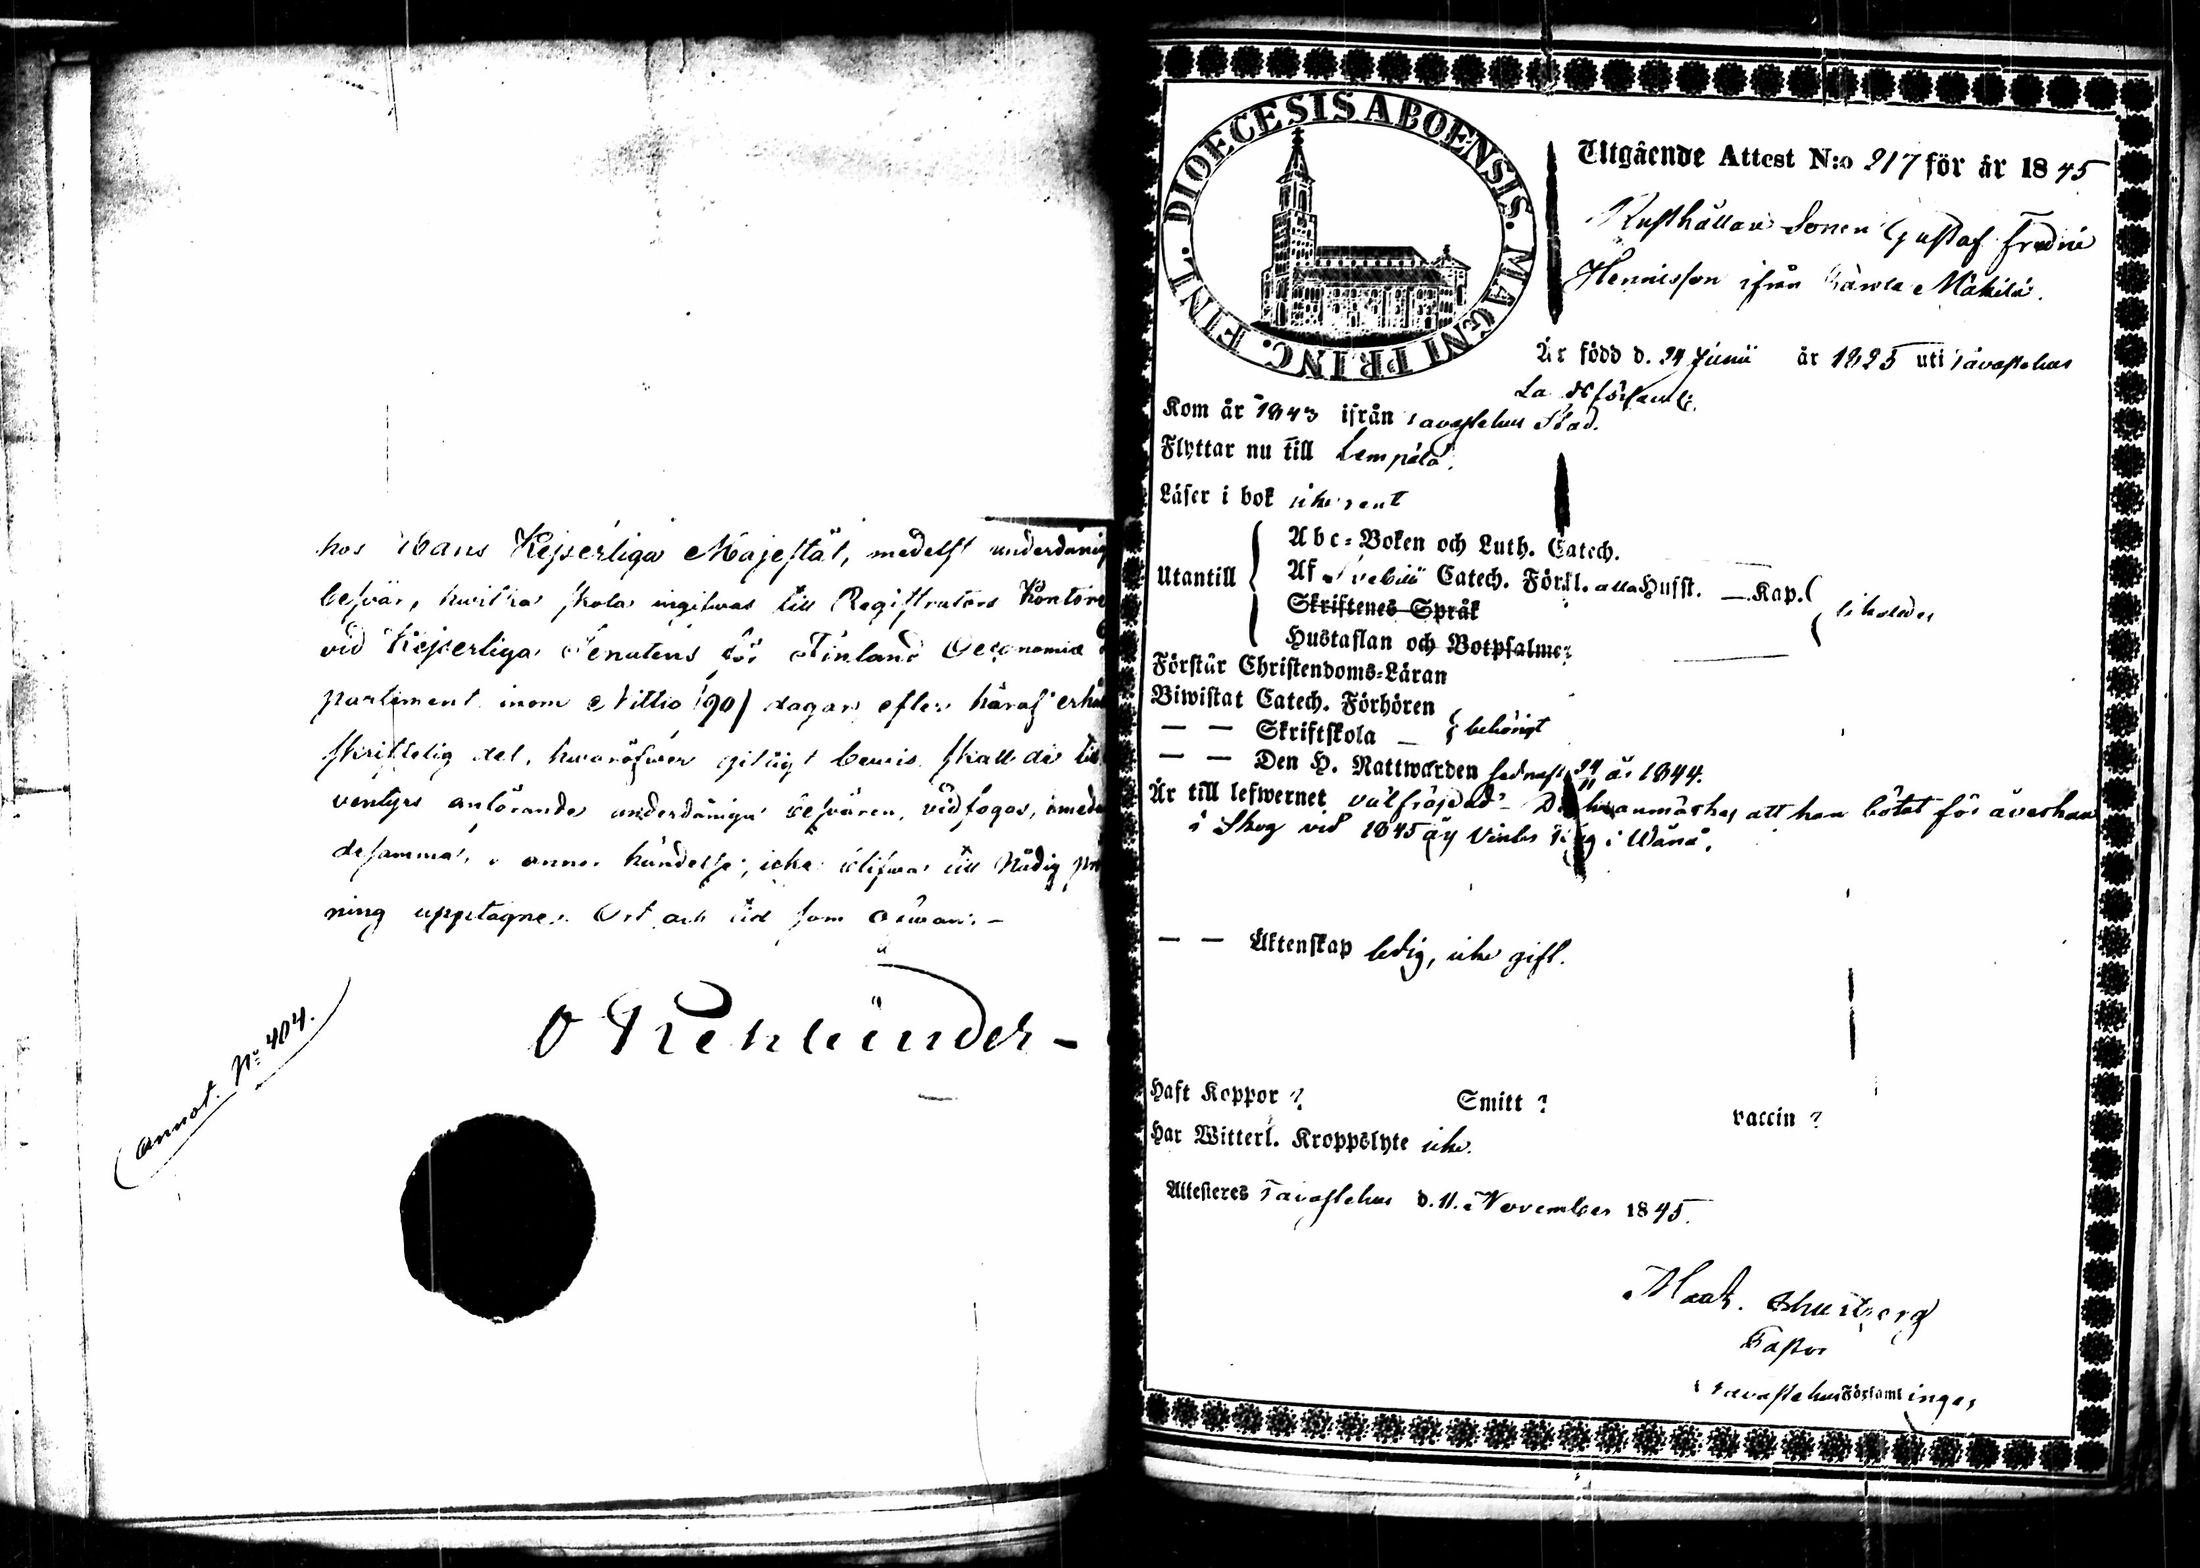 hos Hans Kejserliga Majestät, medelst underdånig
besvär, hwilka skola ingifwas till Registrators Kontore
vid Kejserliga Senatens för Finland Oeconomie
partiment inom Nittio /90/ dagar efter häraf erhå
skriftelig del, hwaröfwer giltigt bewis skall de
ventyrs anförande underdåniga besvären, vidfogas, 
desamma, i annor händelse, icke blifwa till Nådig prö
ning upptagne. Ort och tid som ofwan. –
O Rehbinder –
Annot. No 404.
DIOECESIS ABOENSIS. MAGNI PRINC. FINL.
Utgående Attest N:o 217 för år 1845
Rusthållare Sonen Gustaf Fredric
Henricsson ifrån Mäkilä.
Är född d. 24 Junii år 1825 uti Tavastehus
Landsförsaml.
Kom år 1843 ifrån Tavastehus Stad.
Flyttar nu till Lempälä.
Läser i bok icke rent
Utantill
Abc-Boken och Luth. Catech.
Af Svebilii Catech. Förkl. alla Husst. — Kap.
Skriftenes Språk
Hustaflan och Botpsalmer
likaledes
Förstår Christendoms-Läran
Biwistat Catech. Förhören
— — Skriftskola — behörigt
— — Den H. Nattwarden sednast 24/11 år 1844.
Är till lefwernet välfräjdad – Dock anmärkes att han bötat för åverkan
i Skog vid 1845 års Vinter Ting i Wånå.
— — Äktenskap ledig, icke gift.
Haft Koppor ? Smitt ? vaccin ?
Har Witterl. Kroppslyte icke.
Attesteres Tavastehus d. 11. November 1845.
Pastor
i Tavastehus Församlingar